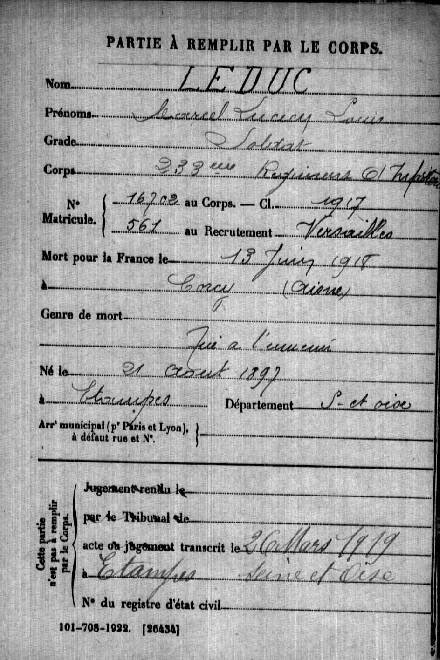 PARTIE À REMPLIR PAR LE CORPS.
Nom LEDUC
Prénoms Marcel Lucien Louis
Grade Soldat
Corps 233eme Régiment d'Infanterie
N° Matricule. 16702 au Corps. — Cl. 1917
561 au Recrutement Versailles
Mort pour la France le 13 Juin 1918
à Corcy (Aisne)
Genre de mort
Tué a l'ennemi
Né le 21 Aout 1897
à Etampes Département S- et oise
Arrt municipal (pr Paris et Lyon),
à défaut rue et N°.
Cette partie
n'est pas à remplir
par le Corps.
Jugement rendu le
par le Tribunal de
acte ou jugement transcrit le 26 Mars 1919
à Etampes Seine et Oise
N° du registre d'état civil
101-708-1922. [26434]